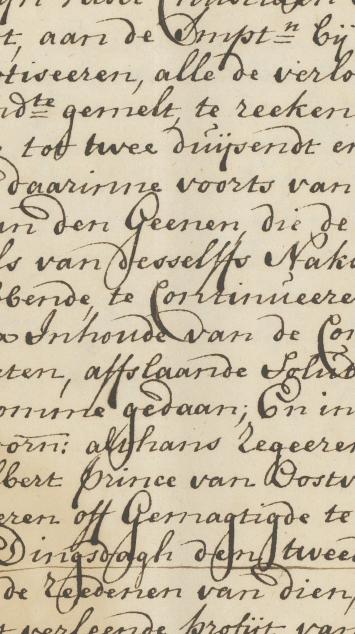 t, aan de Impt=n bij
tiseeren, alle de verlo
nd=te gemelt, te reeken
tot twee duijsendt en
daarinne voorts van
an den Geenen, die de
ls van desselffs Nako
bende, te Continueere
Inhoude van de Con
ten, affslaande Solut
omme gedaan; En in
oorn: althans Regeeren
lbert Prince van Oostv
eren off Gemagtigde te
Dingsdagh den tweed
de Reedenen van dien,
t verleende profijt van